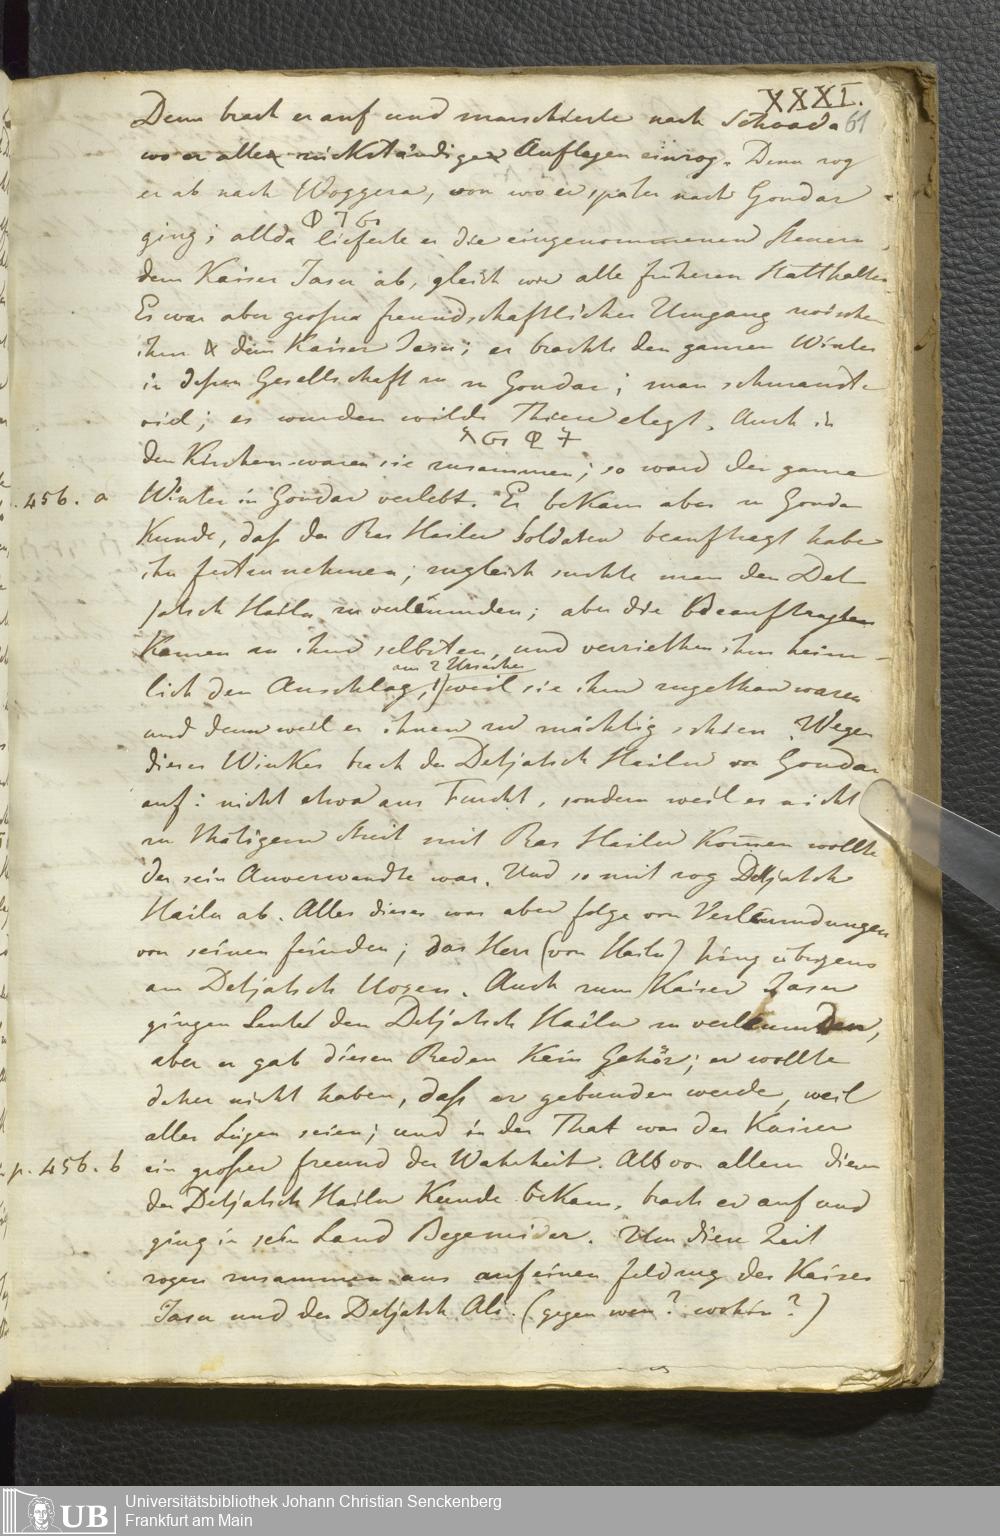 XXXI.
61
Denn brach er auf und marschierte nach Schoada
wo er alle rückständige Auflagen einzog. Denn zog
er ab nach Woggera, von wo er später nach Gondar
ging; allda lieferte er die eingenommenen Steuern
dem Kaiser Jasu ab, gleich wie alle früheren Statthalter
Es war aber grosser freundschaftlicher Umgang zwischen
ihm & dem Kaiser Jasu; er brachte den ganzen Winter
in dessen Gesellschaft zu in Gondar; man schmauste
viel; es wurden wilde Thiere elegt. Auch in
den Kirchen waren sie zusammen; so ward der ganze
456. a Winter in Gondar verlebt. Er bekam aber in Gondar
Kunde, daß der Ras Hailu Soldaten beauftragt habe
ihn festzunehmen; zugleich suchte man den Det
jatsch Hailu zu verläumden; aber die beauftragten
kamen zu ihm selbsten, und verriethen ihm heim-
aus 2 Ursachen
lich den Anschlag, 1) weil sie ihm zugethan waren
und denn weil er ihnen zu mächtig schien. Wegen
dieses Winkes brach der Detjatsch Hailu von Gondar
auf: nicht etwa aus Furcht, sondern weil er nicht
zu thätigem Streit mit Ras Hailu kommen wollte
der sein Anverwandte war. Und somit zog Detjatsch
Hailu ab. Alles dieses war aber folge von Verläumdungen
von seinen feinden; das Herz (von Hailu) hing übrigens
am Detjatsch . Auch zum Kaiser Jasu
gingen Leute den Detjatsch Hailu zu verläumden,
aber er gab diesen Reden kein Gehör; er wollte
daher nicht haben, daß er gebunden werde, weil
alles Lügen seien; und in der That war der Kaiser
p. 456. b ein großer freund der Wahrheit. Als von allem diesem
der Detjatsch Hailu Kunde bekam, brach er auf und
ging in sein Land Begemider. Um diese Zeit
zogen zusammen aus auf einen feldzug der Kaiser
Jasu und der Detjatsch Ali. (gegen wen? wohin?)
UB
Universitätsbibliothek Johann Christian Senckenberg
Frankfurt am Main